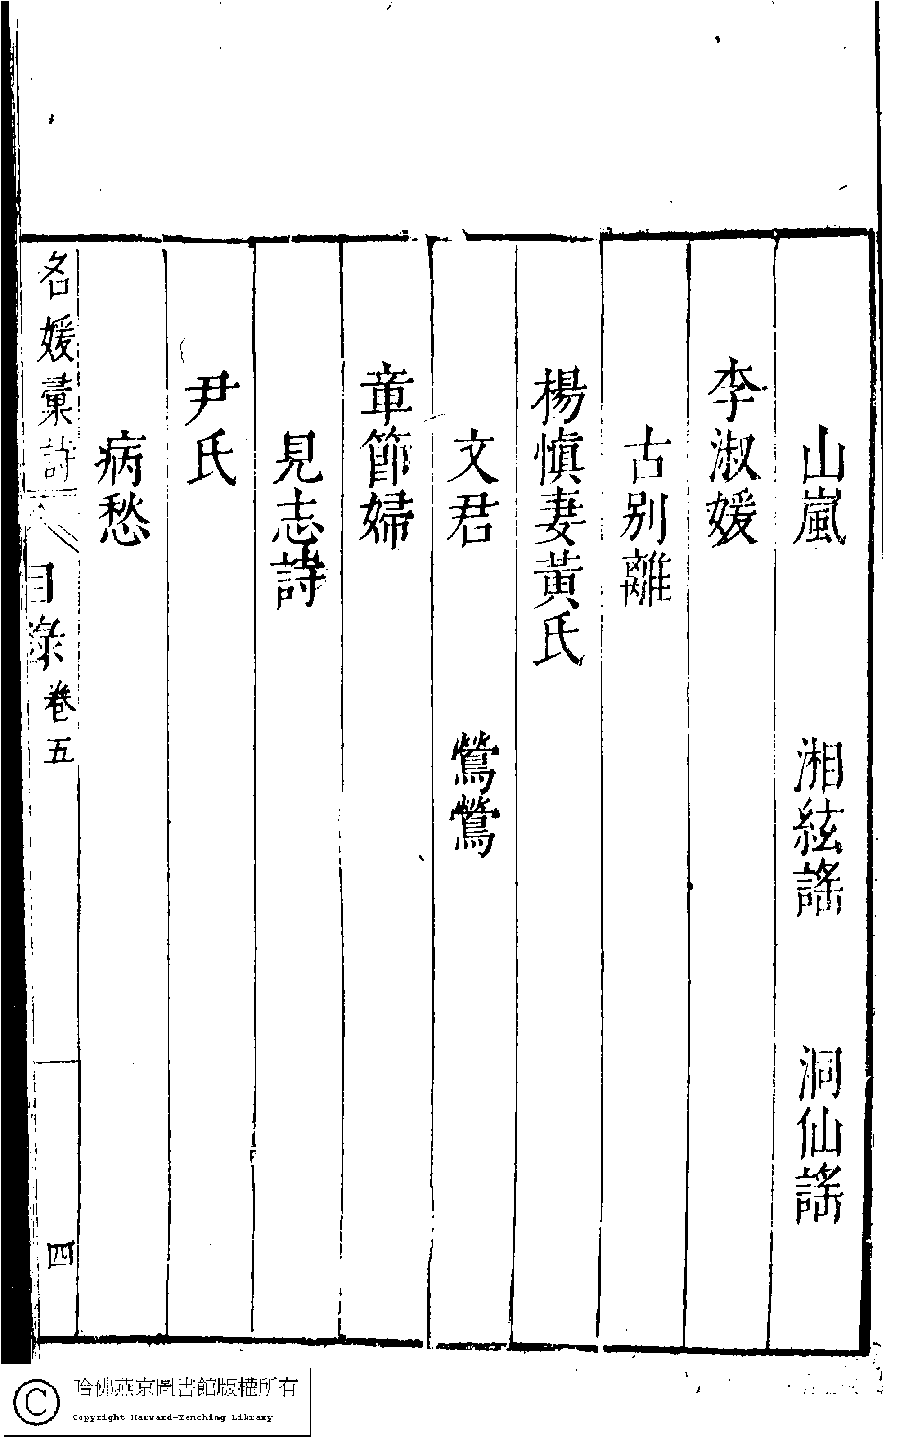 山嵐　湘絃謠　洞仙謠
李淑媛
古別離
楊慎妻黃氏
文君　鶯鶯
章節婦
見志詩
尹氏
病愁
名媛彙詩　目錄　卷五　四
哈佛燕京圖書館版權所有
Copyright Harvard-Yenching Library